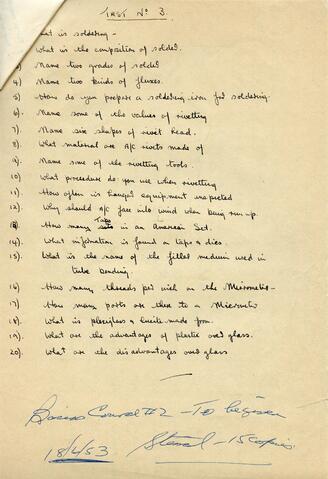 TEST No 3.
hat is soldering -
What is the composition of solder.
3) Name two grades of solder
4) Name two kinds of fluxes.
5) How do you prepare a soldering iron for soldering.
6) Name some of the values of rivetting
7) Name six shapes of rivet head.
8) What material are A/C rivets made of
9) Name some of the rivetting tools.
10) What procedure do you use when rivetting
11) How often is hangar equipment inspected
12) Why should A/C face into wind when being run up.
13) How many Taps in an American Set.
14) What information is found on taps & dies.
15) What is the name of the filler medium used in
tube bending.
16) How many threads per inch on the Micrometer
17) How many parts are there to a Micrometer
18) What is plexiglass & lucite made from.
19) What are the advantages of plastic over glass.
20) What are the disadvantages over glass
Course #2 - To be given
18/4/53 Stencil - 15 copies